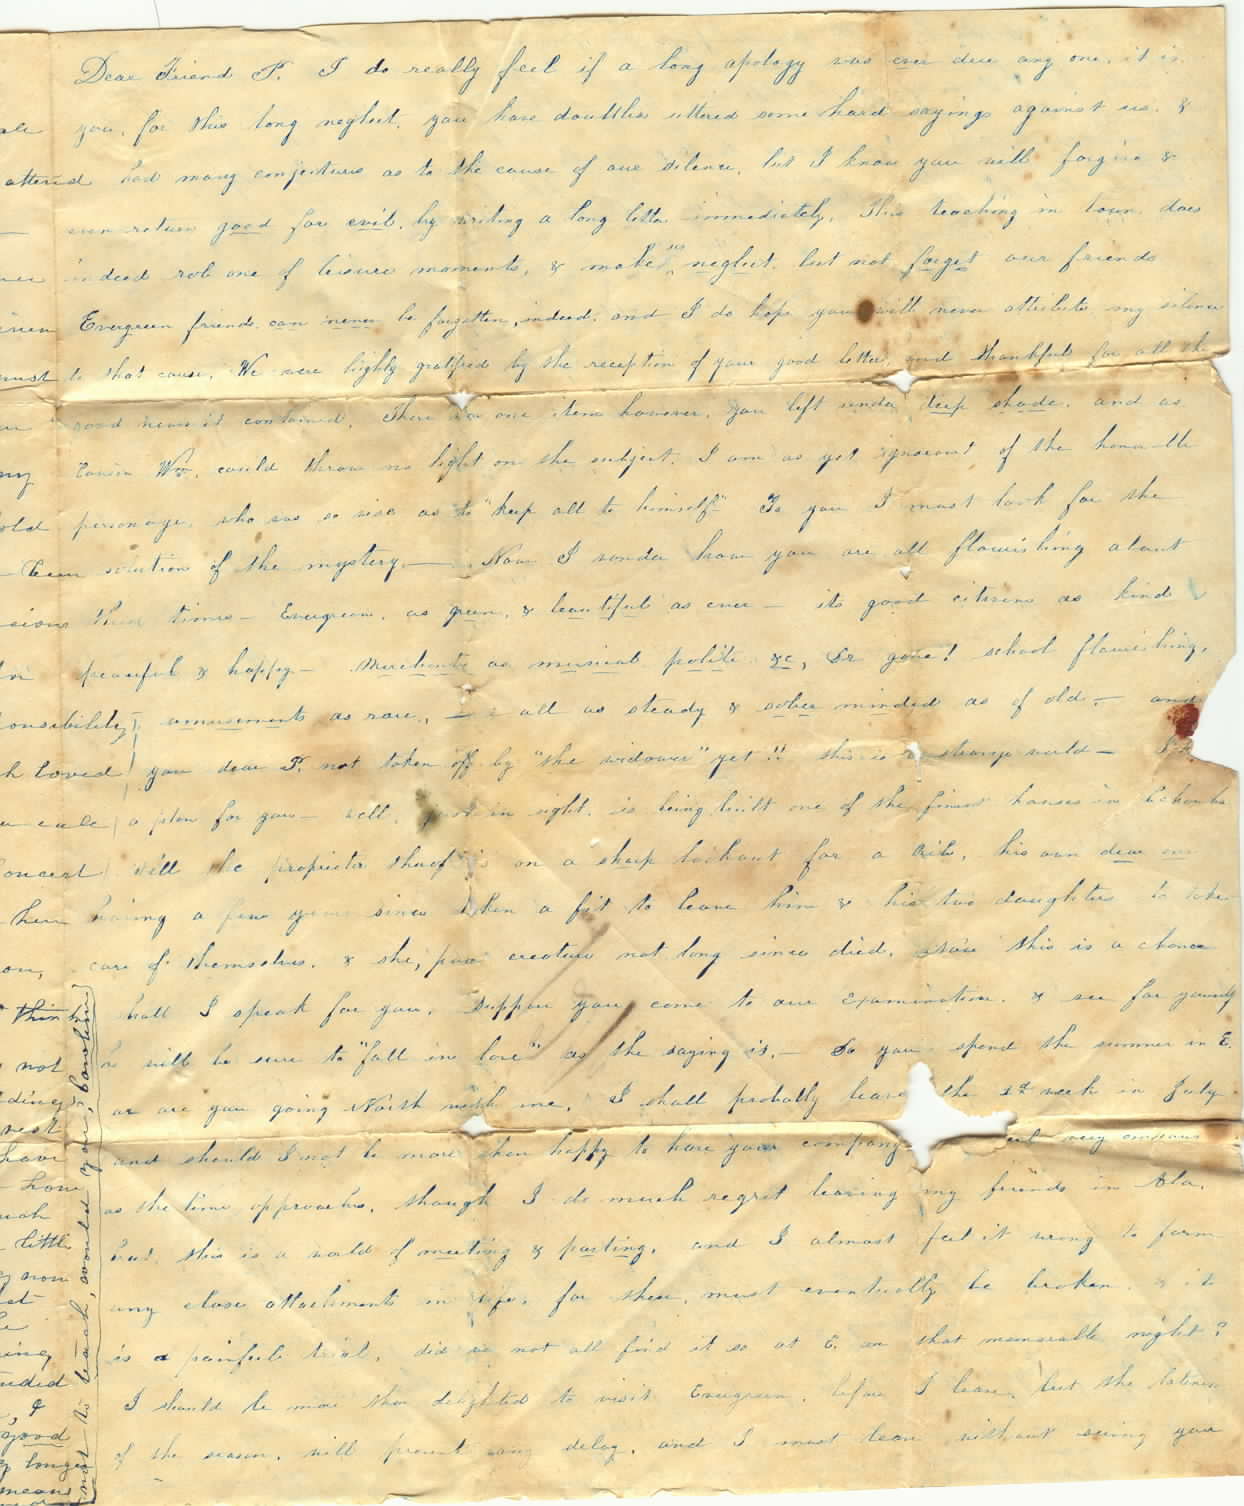 Dear Friend P. I do really feel if a long apology was ever due any one, it is
you, for this long neglect. you have doubtless uttered some hard sayings against us. &
had many conjectures as to the cause of our silence, but I know you will forgive &
even return good for evil, by writing a long letter immediately. This teaching in town does
indeed rob one of leisure moments, & make us neglect, but not forget our friends
Evergreen friends can never be forgotten, indeed, and I do hope you will never attribute my silence
to that cause. We were highly gratified by the reception of your good letter, and thankful for all the
good news it contained. There was one item however, you left under deep shade, and as
Cousin Wm. could throw no light on the subject, I am as yet ignorant of the
personage, who was so wise as to "keep all to himself" To you I must look for the
solution of the mystery. — Now I wonder how you are all flourishing about
these times — Evergreen, as green, & beautiful as ever — its good citizens as kind
peaceful & happy — Merchants as musical polite &c, Dr gone! school flourishing,
amusements as rare, — & all as steady & sober minded as of old. — and
you dear P. not taken off by "the widower" yet!! this is a strange world —
a plan for you — well, just in sight, is being built one of the finest houses in
will the proprietor thereof is on a sharp lookout for a rib, his own dear one
having a few years since taken a fit to leave him & his two daughters to take
care of themselves, & she, poor creature not long since died. Now this is a chance
shall I speak for you. Suppose you come to our Examination, & see for yourself
he will be sure to "fall in love" as the saying is. — Do you spend the summer in E.
or are you going North with me. I shall probably leave the 1st week in July
and should I not be more than happy to have your company very anxious
as the time approaches, though I do much regret leaving my friends in Ala.
but, this is a world of meeting & parting, and I almost feel it wrong to form
any close attachments in life, for these, must eventually be broken, & it
is a painful trial, did we not all find it so at E. on that memorable night?
I should be more than delighted to visit Evergreen, before I leave, but the lateness
of the season, will prevent any delay, and I must leave without seeing you
attend
must
old
been
loved
concert
then
on,
think
not
next
have
how
little
now
good
longer
means
not to teach, would you, Caroline